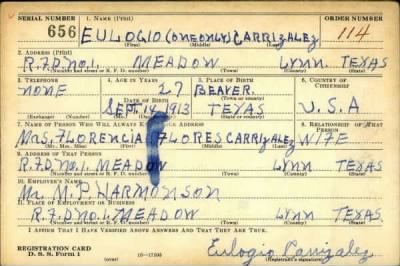 SERIAL NUMBER 1. NAME (Print) ORDER NUMBER
656 EULOGIO (ONE ONLY) CARRIZALEZ 114
(First) (Middle) (Last)
2. ADDRESS (Print)
R.F.D. NO.1. MEADOW LYNN. TEXAS
(Number and street or R. F. D. number) (Town) (County) (State)
3. TELEPHONE 4. AGE IN YEARS 5. PLACE OF BIRTH 6. COUNTRY OF CITIZENSHIP
NONE 27 BEAVER.
DATE OF BIRTH (Town or county)
SEPT. 14, 1913 TEXAS U.S.A
(Exchange) (Number) (Mo.) (Day) (Yr.) (State or country)
7. NAME OF PERSON WHO WILL ALWAYS KNOW YOUR ADDRESS 8. RELATIONSHIP OF THAT PERSON
Mrs. FLORENCIA FLORES CARRIZALEZ WIFE
(Mr., Mrs., Miss) (First) (Middle) (Last)
9. ADDRESS OF THAT PERSON
R.F.D. NO.1. MEADOW LYNN TEXAS
(Number and street or R. F. D. number) (Town) (County) (State)
10. EMPLOYER'S NAME
Mr. M.P. HARMONSON
11. PLACE OF EMPLOYMENT OR BUSINESS
R.F.D. NO.1. MEADOW LYNN TEXAS
(Number and street or R. F. D. number) (Town) (County) (State)
I AFFIRM THAT I HAVE VERIFIED ABOVE ANSWERS AND THAT THEY ARE TRUE.
REGISTRATION CARD
D. S. S. Form 1 (over) Eulogio Carrizalez
(Registrant's signature)